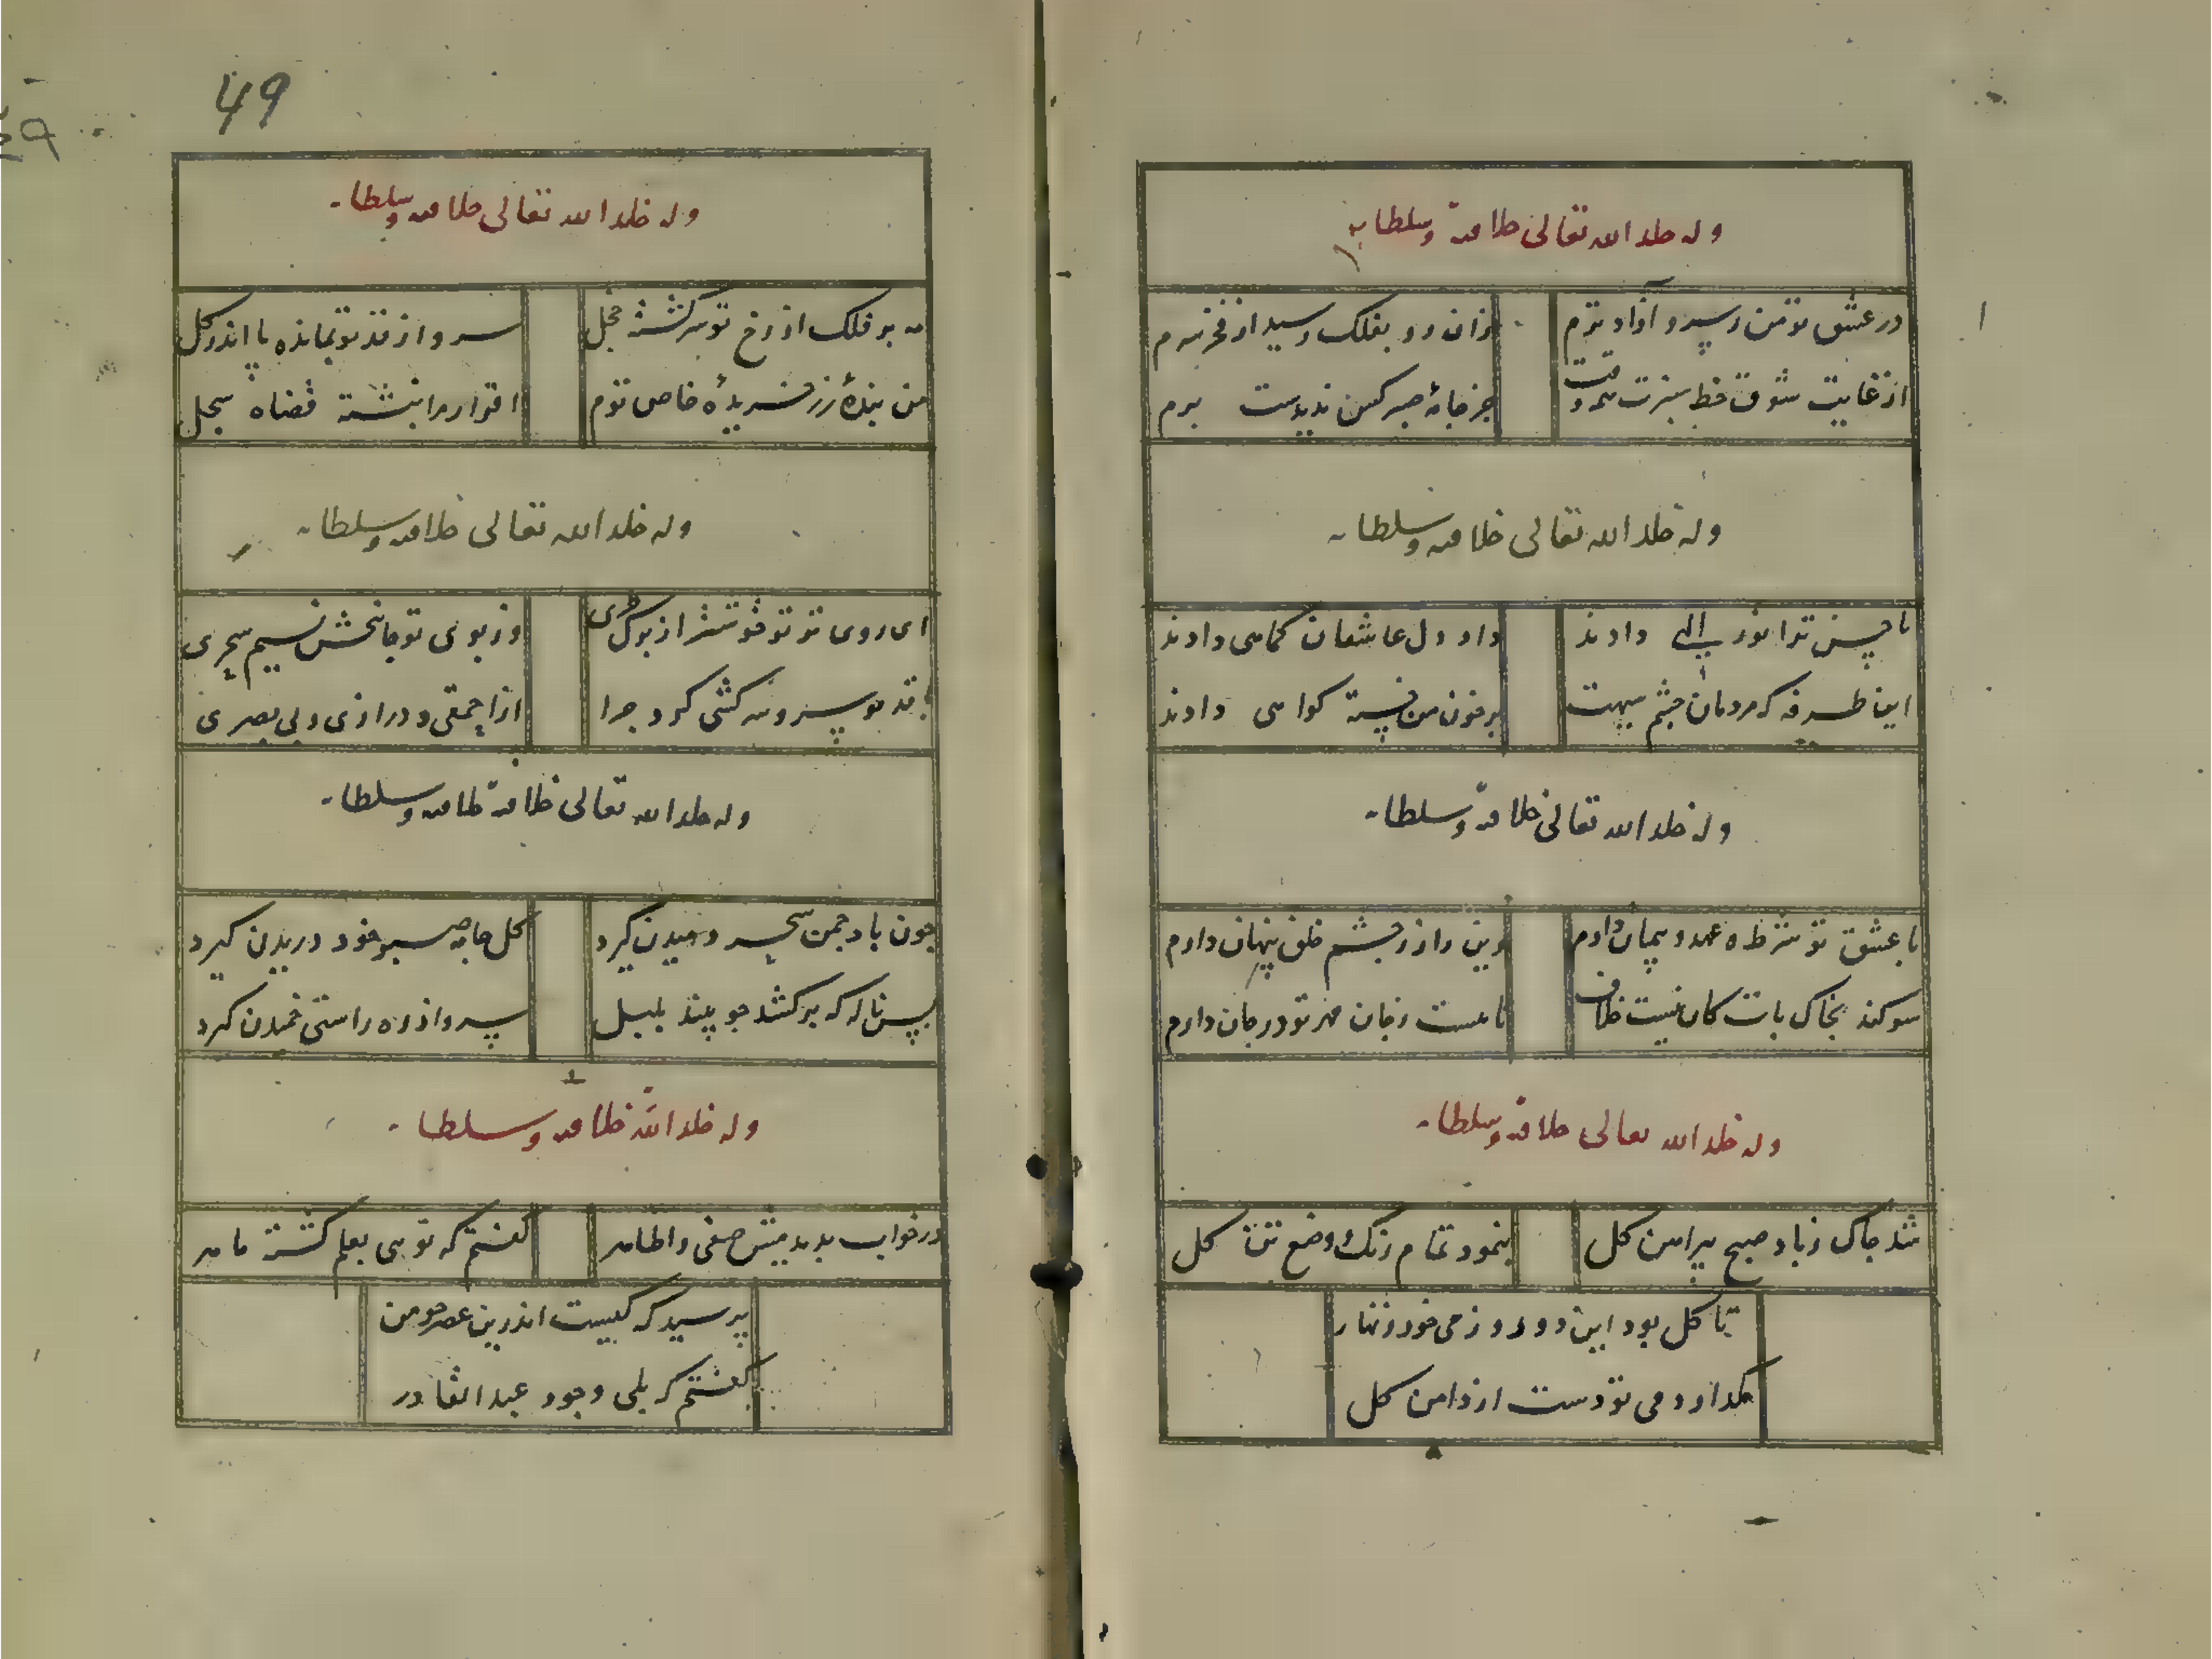 وله خلد الله تعالی خلافته وسلطانه
در عشق تو من سپرو آزاد توم
زان رو بفلک رسید از فخر سرم
از غایت شوق خط سبزت
جز جامهٔ صبر کس ندیدست برم
وله خلد الله تعالی خلافته وسلطانه
تا حسن ترا نور الهی دادند
داد دل عاشقان کماهی دادند
این طرفه که مردمان چشم سیهت
بر خون من خسته کواهی دادند
وله خلد الله تعالی خلافته وسلطانه
با عشق تو شرط و عهد و پیمان دارم
وین راز ز چشم خلق پنهان دارم
سوکند بخاک پات کان نیست خلاف
تا هست ز جان مهر تو در جان دارم
وله خلد الله تعالی خلافته وسلطانه
شد چاک ز باد صبح پیراهن کل
بنمود تمام رنک وضع تن کل
تا کل بود این دو روز می خور زنهار
مکذار دمی تو دست از دامن کل
49
وله خلد الله تعالی خلافته وسلطانه
مه بر فلک از رخ تو سرکشته خجل
سرو از قد تو بمانده پا اندر کل
من بندهٔ زر خریدهٔ خاص توم
اقرار مرا نبشته قضاه سجل
وله خلد الله تعالی خلافته وسلطانه
ای روی تو خوشتر از برک طری
وز بوی تو جانبخش نسیم سحری
با قد تو سرو سرکشی کرد چرا
از احمقی و درازی و بی بصری
وله خلد الله تعالی خلافته خلافته وسلطانه
چون باد چمن سحر دمیدن کیرد
کل جامه صبر خود دریدن کیرد
بس ناله که برکشد چو بیند بلبل
سرو از ره راستی خمیدن کیرد
وله خلد الله خلافته وسلطانه
در خواب بدیدمش صفی واظاهر
کفتم که تویی بعلم کشته ماهر
پرسید که کیست اندرین عصر چو من
کفتم که بلی وجود عبد القادر